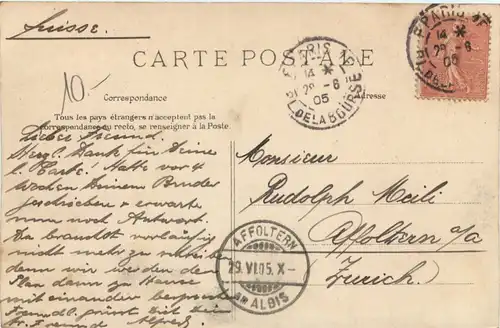 Suisse.
10.-
CARTE POSTALE
Correspondance
Adresse
Tous les pays étrangers n'acceptent pas la
correspondance au recto, se renseigner à la Poste.
PARIS
14 *
28-6
05
PL. DE LA BOURSE
PARIS
14 *
28-6
05
Lieber Freund.
Herzl. Dank für Deine
l. Karte. Hatte vor 4
Wochen Deinem Bruder
geschrieben & erwarte
nun noch Antwort.
Du brauchst vorläufig
nicht mehr zu
denn wir werden den
Plan dann zu Hause
miteinander
grüsst Dich Dein
Freund Alfred
Monsieur
Rudolph Meili
Affoltern a/a
(Zurich)
AFFOLTERN
29.VI.05.X-
AM ALBIS